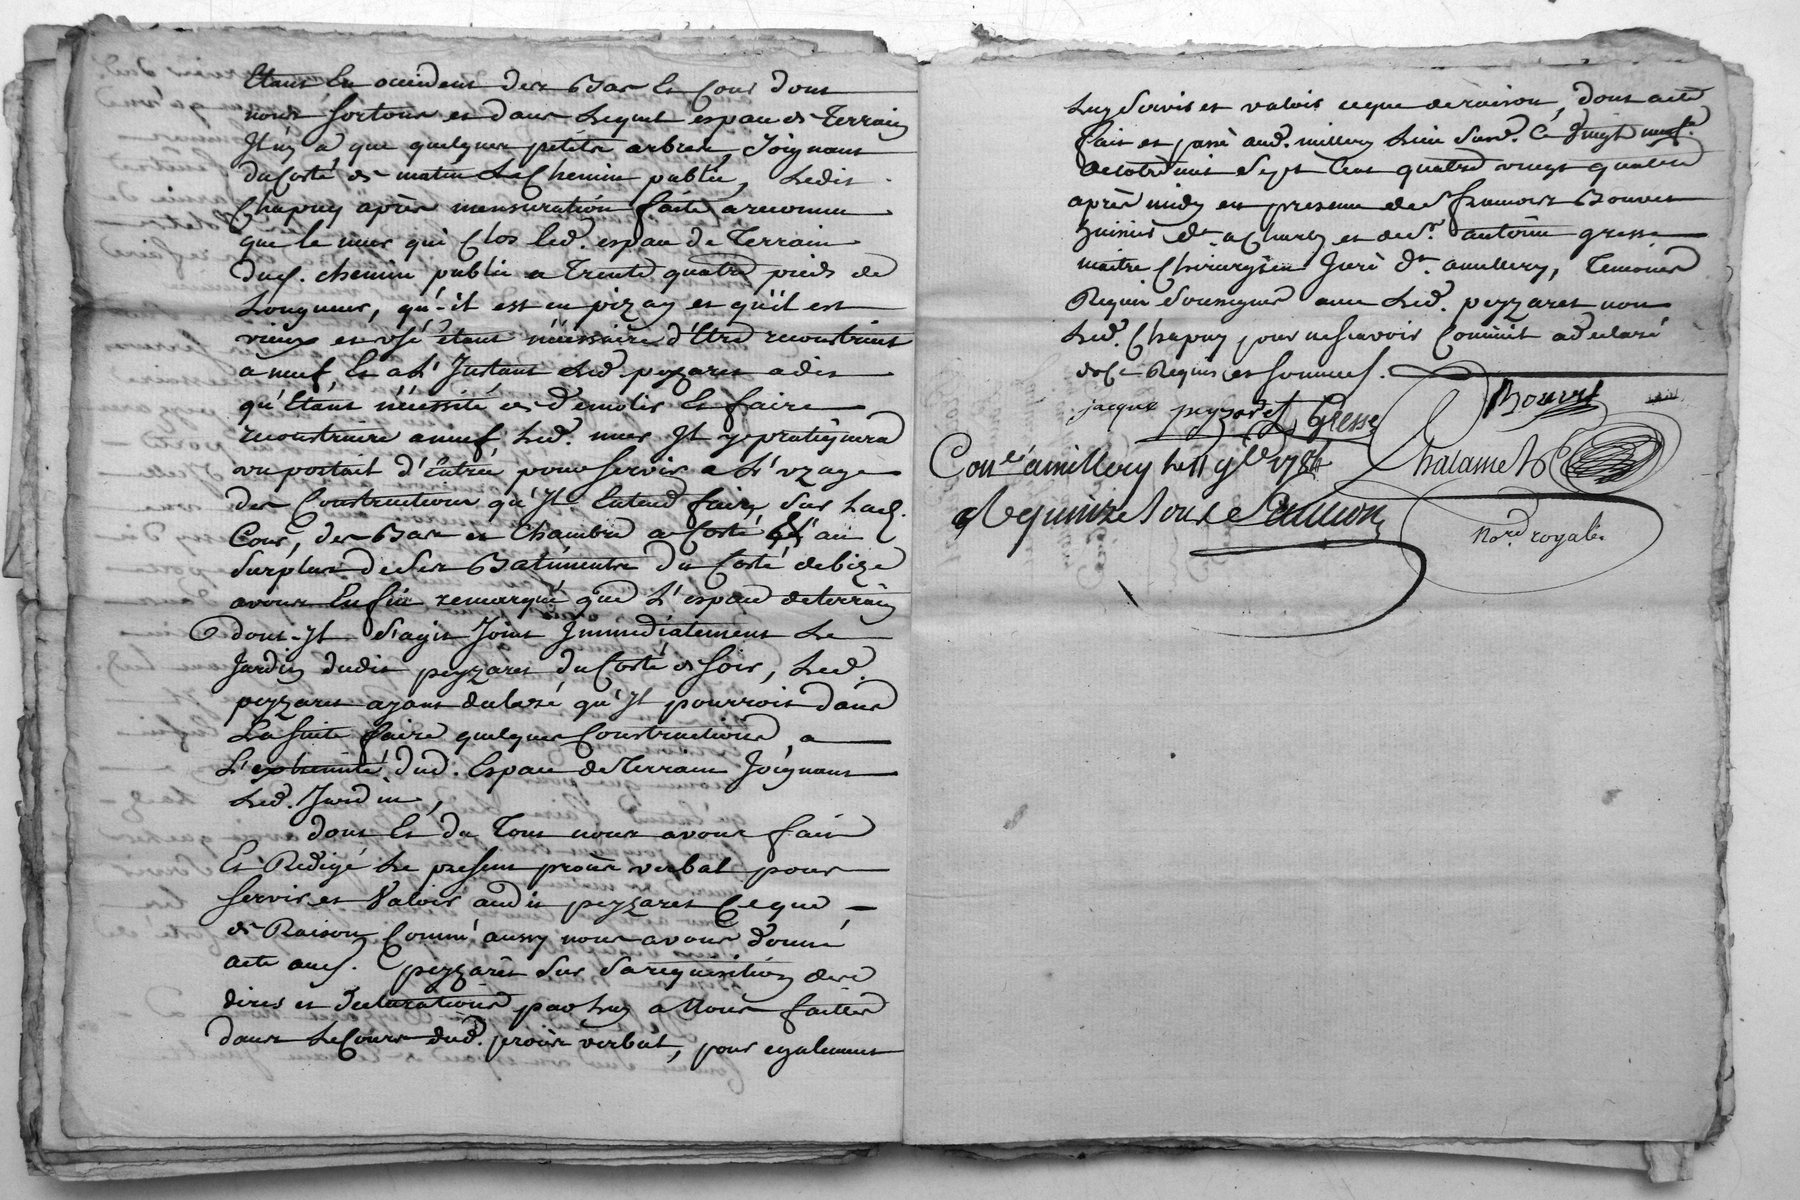 étant En occident des Bas Et Cour dont
nous sortons et dans Lequel espace de Terrain
Il n'y a que quelques petits arbres, Joignant
du Costé de matin Le Chemin public, Ledit
Chapuy après mensuration faite a reconnu
que le mur qui Clos led. espace de Terrain
dud. chemin public a Trente quatre pieds de
Longueur, qu'il est en pizay et qu'il est
vieux et usé étant nécessaire d'Etre reconstruit
a neuf, Et a L'Instant Led. peyzaret a dit
qu'Etant nécessité de démolir Et faire
reconstruire a neuf Led. mur Il y pratiquera
un portail d'Entrée pour servir a L'uzage
des Constructions qu'Il Entend faire sur Lad.
Cour, des Bas et Chambre a Costé Et au
Surplus de ses Batiments du Costé de bize
avons Enfin remarqué que L'espace de terrain
dont Il s'agit Joint Immédiatement Le
Jardin dudit peyzaret du Costé de soir, Led.
peyzaret ayant déclaré qu'Il pourroit dans
La suite faire quelques Constructions a
L'extremité dud. Espace de Terrain Joignant
Led. Jardin,
dont Et du Tout nous avons fait
Et Redigé Le présent procès verbal pour
servir et Valoir audit peyzaret Ce que
de Raison Comme aussy nous avons donné
acte aud. peyzaret sur sa requisition des
dires et déclarations par Luy a Nous faittes
dans Le Cours dud. procès verbal, pour egalement
Luy servir et valoir ce que de raison, dont acte
fait et passé aud. millery Lieu susd. Ce vingt neuf
octobre mil sept Cent quatre vingt quatre
après midy en presence de Sr. francois Bouvet
huissier dt. a Charly et de Sr. antoine gresse
maitre Chirurgien Juré dt. a millery, Temoins
Requis soussignés avec Led. peyzaret non
Led. Chapuy pour ne scavoir Comme il a declaré
de Ce Requis et sommé.
jacque peyzaret Gresse Bouvet
Conlé a millery Le 11 9bre 1784 Chalamel
Reçu quinze sous Saunion
Nore. royal.